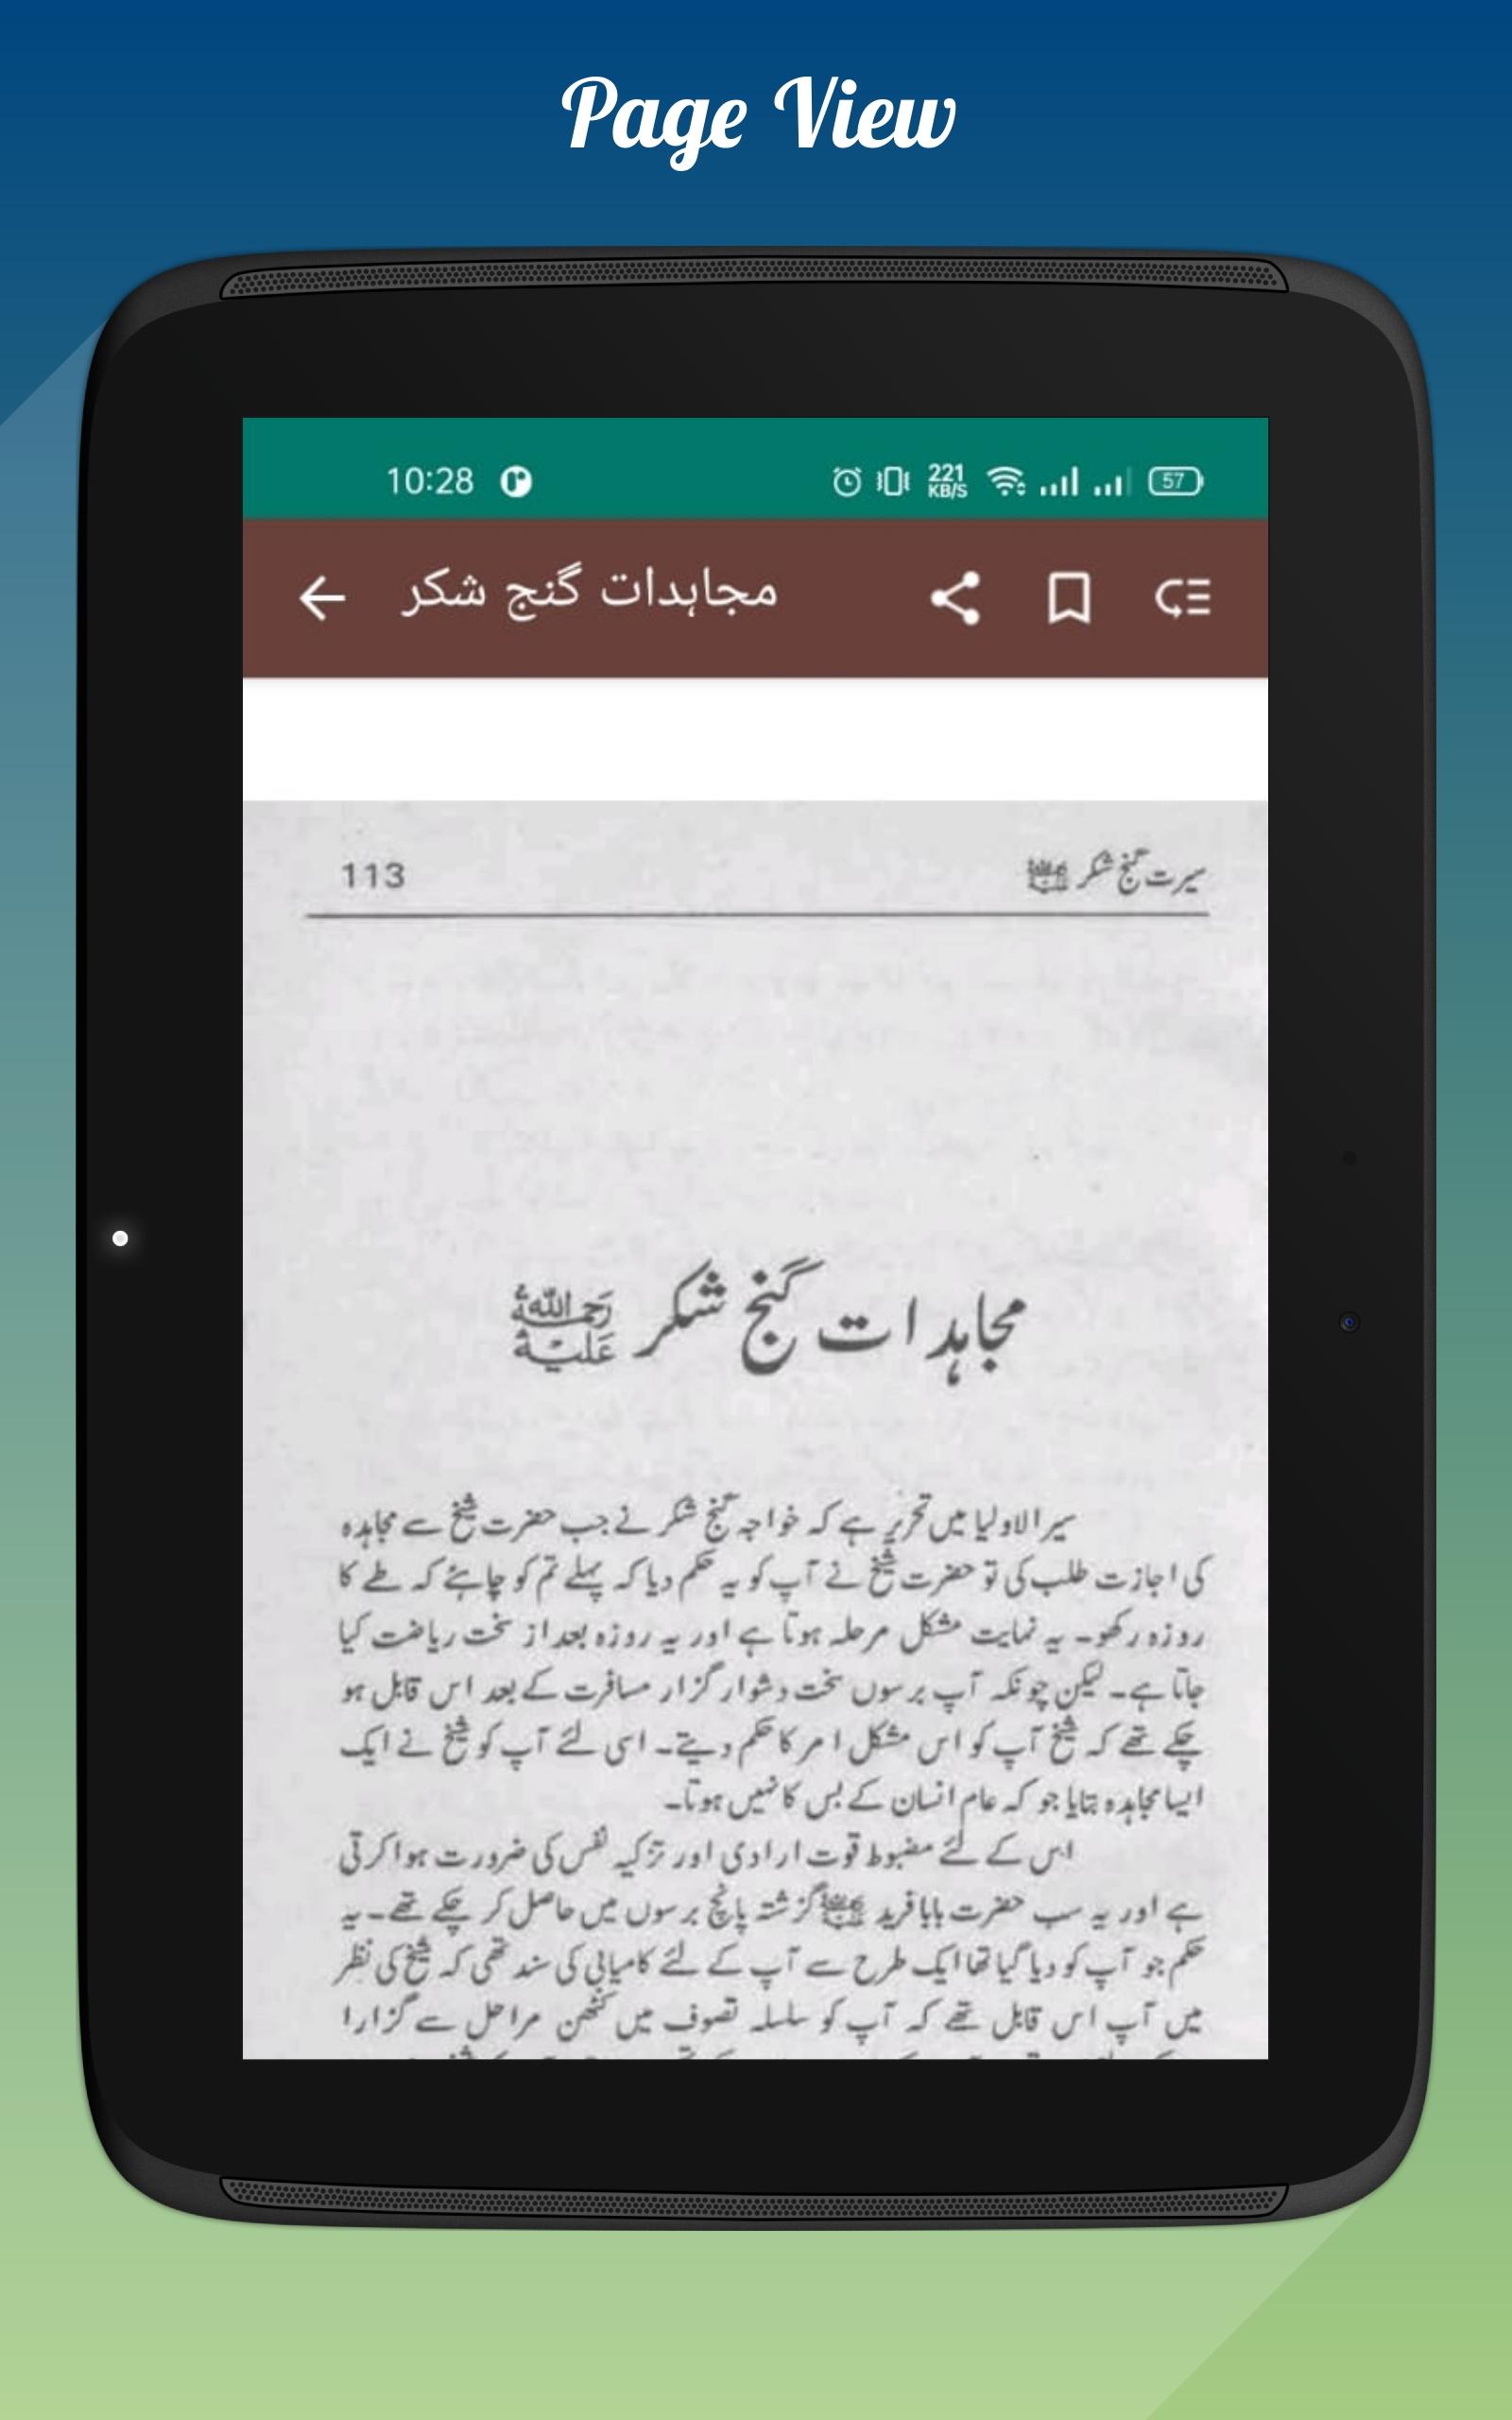 Page View
10:28
221
KB/S
57
مجاہدات گنج شکر
سیرت گنج شکر
113
مجاہدات گنج شکر رحمۃ اللہ علیہ
سیر الاولیا میں تحریر ہے کہ خواجہ گنج شکر نے جب حضرت شیخ سے مجاہدہ
کی اجازت طلب کی تو حضرت شیخ نے آپ کو یہ حکم دیا کہ پہلے تم کو چاہئے کہ طے کا
روزہ رکھو۔ یہ نہایت مشکل مرحلہ ہوتا ہے اور یہ روزہ بعد از سخت ریاضت کیا
جاتا ہے۔ لیکن چونکہ آپ برسوں سخت دشوار گزار مسافرت کے بعد اس قابل ہو
چکے تھے کہ شیخ آپ کو اس مشکل امر کا حکم دیتے۔ اسی لئے آپ کو شیخ نے ایک
ایسا مجاہدہ بتایا جو کہ عام انسان کے بس کا نہیں ہوتا۔
اس کے لئے مضبوط قوت ارادی اور تزکیہ نفس کی ضرورت ہوا کرتی
ہے اور یہ سب حضرت بابا فرید گزشتہ پانچ برسوں میں حاصل کر چکے تھے۔ یہ
حکم جو آپ کو دیا گیا تھا ایک طرح سے آپ کے لئے کامیابی کی سند تھی کہ شیخ کی نظر
میں آپ اس قابل تھے کہ آپ کو سلسلہ تصوف میں کٹھن مراحل سے گزارا